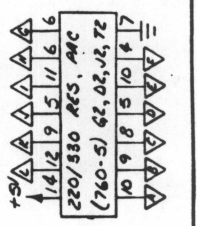 +5V L K J
14 12 9 5 11 6 6
220/330 RES. PAC
(760-5) G2, D2, J2, T2
10 9 8 5 10 4 7
A B C D E